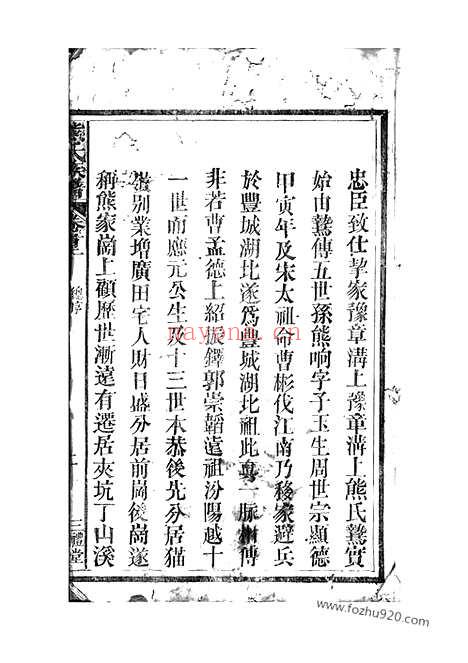 忠臣致仕挈家豫章溝上豫章溝上熊氏鷲實
始由鷲傳五世孫熊响字子玉生周世宗顯德
甲寅年及宋太祖命曹彬伐江南乃移家避兵
於豐城湖北遂爲豐城湖北祖此真一脉相傳
非若曹孟德上紹振鐸郭崇韜遠祖汾陽越十
一世而應元公生及十三世本恭後先分居猫
別業增廣田宅人財日盛分居前崗後崗遂
稱熊家崗上顧歷世漸遠有遷居夾坑丁山溪
熊氏族譜 卷首上
總序
三禮堂
nayong.cn
www.fozhu920.com